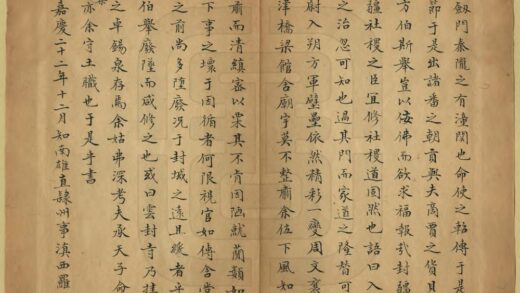 劔門秦隴之有潼関也命使之軺傳于是
節于是出諸番之朝貢與夫商賈之貨貝
方伯斯舉豈以佞佛而欲求福報㦲封疆
疆社稷之臣宜修社稷道固然也語曰入
之治忽可知也過其門而家道之隆替可
尉入朔方軍壁壘依然精彩一變周文襄
津橋梁館舍廟宇莫不整肅余伍下風如
肅而清縝密以栗其不肯因陋就蕳類如
下事之壞于因循者何限視官如傳舍當
之前尚多墮廢况于封域之遠且緩者乎
伯舉廢墜而咸修之也或曰雲封寺乃挂
之卓錫泉存焉余姑弗深考夫承天子命
亦余守土職也于是乎書
嘉慶二十二年十二月知南雄直隸州事滇西羅